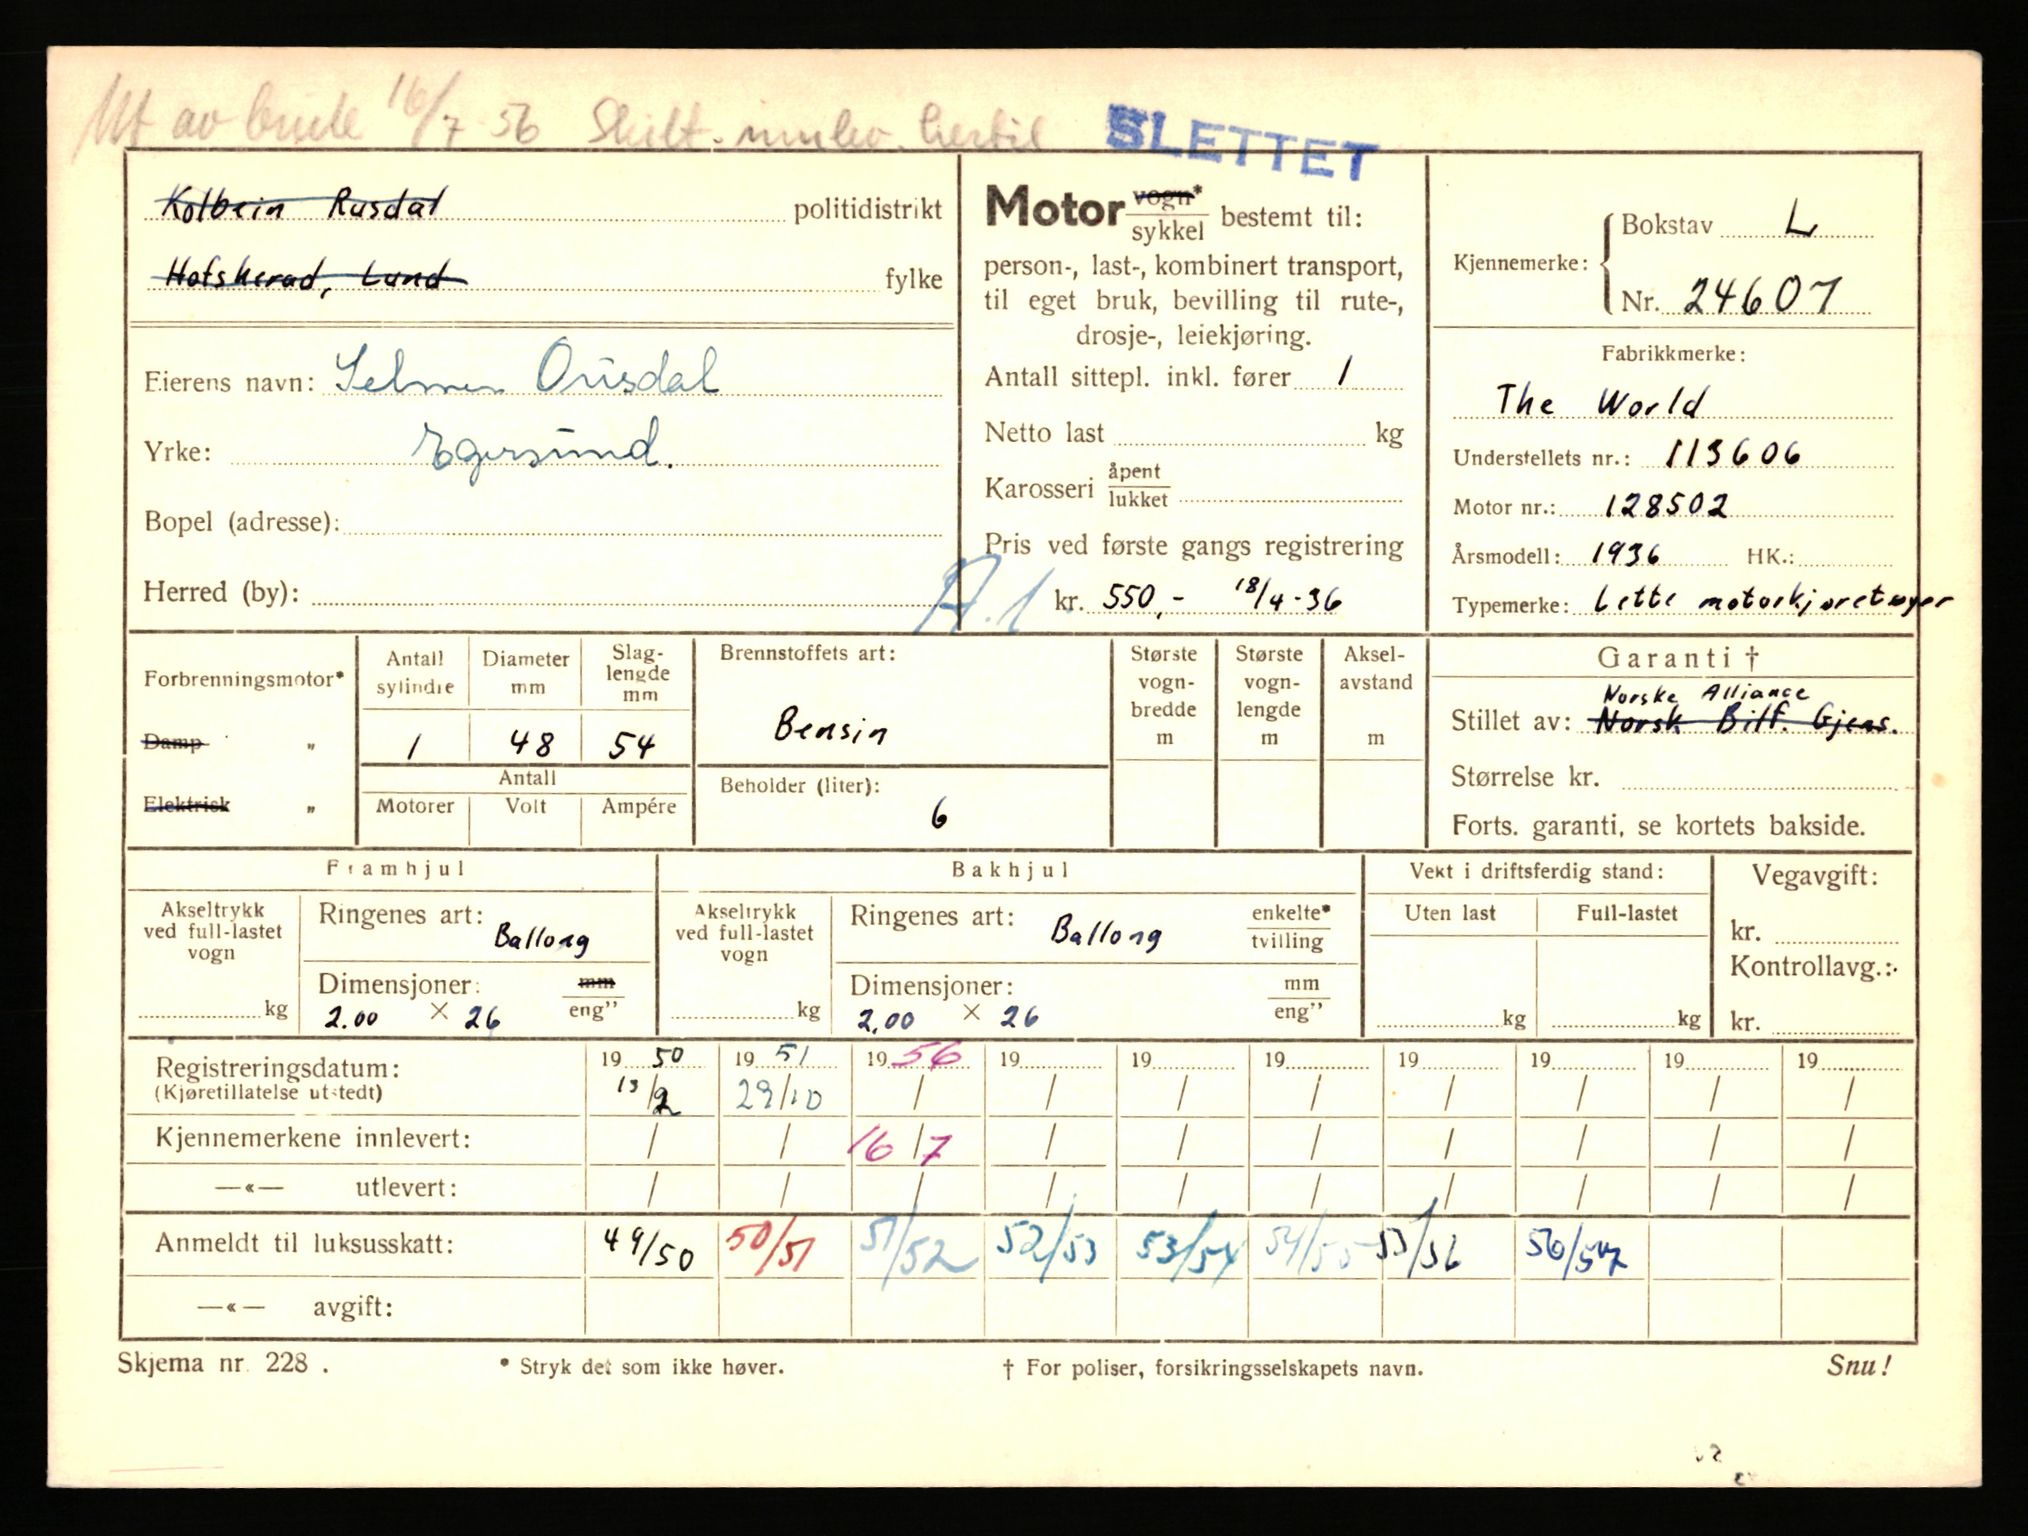 Ut av bruk 16/7 56 Skilt. innlev. hertil SLETTET
Kolbein Rusdal politidistrikt
Hofsherad, Lund fylke
Eierens navn: Selmer Ousdal
Yrke: Egersund.
Bopel (adresse):
Herred (by):
Motor vogn*/sykkel bestemt til:
person-, last-, kombinert transport,
til eget bruk, bevilling til rute-,
drosje-, leiekjøring.
Antall sittepl. inkl. fører 1
Netto last kg
Karosseri åpent/lukket
Pris ved første gangs registrering
A.1 kr. 550,- 18/4-36
Bokstav L
Kjennemerke:
Nr. 24607
Fabrikkmerke:
The World
Understellets nr.: 113606
Motor nr.: 128502
Årsmodell: 1936 HK.:
Typemerke: Lette motorkjøretøyer
Forbrenningsmotor*
Damp "
Elektrisk "
Antall sylindre Diameter mm Slag-lengde mm
1 48 54
Antall
Motorer Volt Ampére
Brennstoffets art:
Bensin
Beholder (liter):
6
Største vogn-bredde m
Største vogn-lengde m
Aksel-avstand m
Garanti †
Norske Alliance
Stillet av: Norsk Bilf. Gjens.
Størrelse kr.
Forts. garanti, se kortets bakside.
Framhjul
Akseltrykk ved full-lastet vogn kg
Ringenes art: Ballong
Dimensjoner: mm/eng"
2.00 × 26
Bakhjul
Akseltrykk ved full-lastet vogn kg
Ringenes art: Ballong enkelte*/tvilling
Dimensjoner: mm/eng"
2.00 × 26
Vekt i driftsferdig stand:
Uten last Full-lastet
kg kg
Vegavgift:
kr.
Kontrollavg.:
kr.
Registreringsdatum: 19 50 19 51 19 56 19 19 19 19 19 19 19
(Kjøretillatelse utstedt) 13/2 29/10 / / / / / / / /
Kjennemerkene innlevert: / / 16/7 / / / / / / /
—«— utlevert: / / / / / / / / / /
Anmeldt til luksusskatt: 49/50 50/51 51/52 52/53 53/54 54/55 55/56 56/57
—«— avgift:
Skjema nr. 228. * Stryk det som ikke høver. † For poliser, forsikringsselskapets navn. Snu!